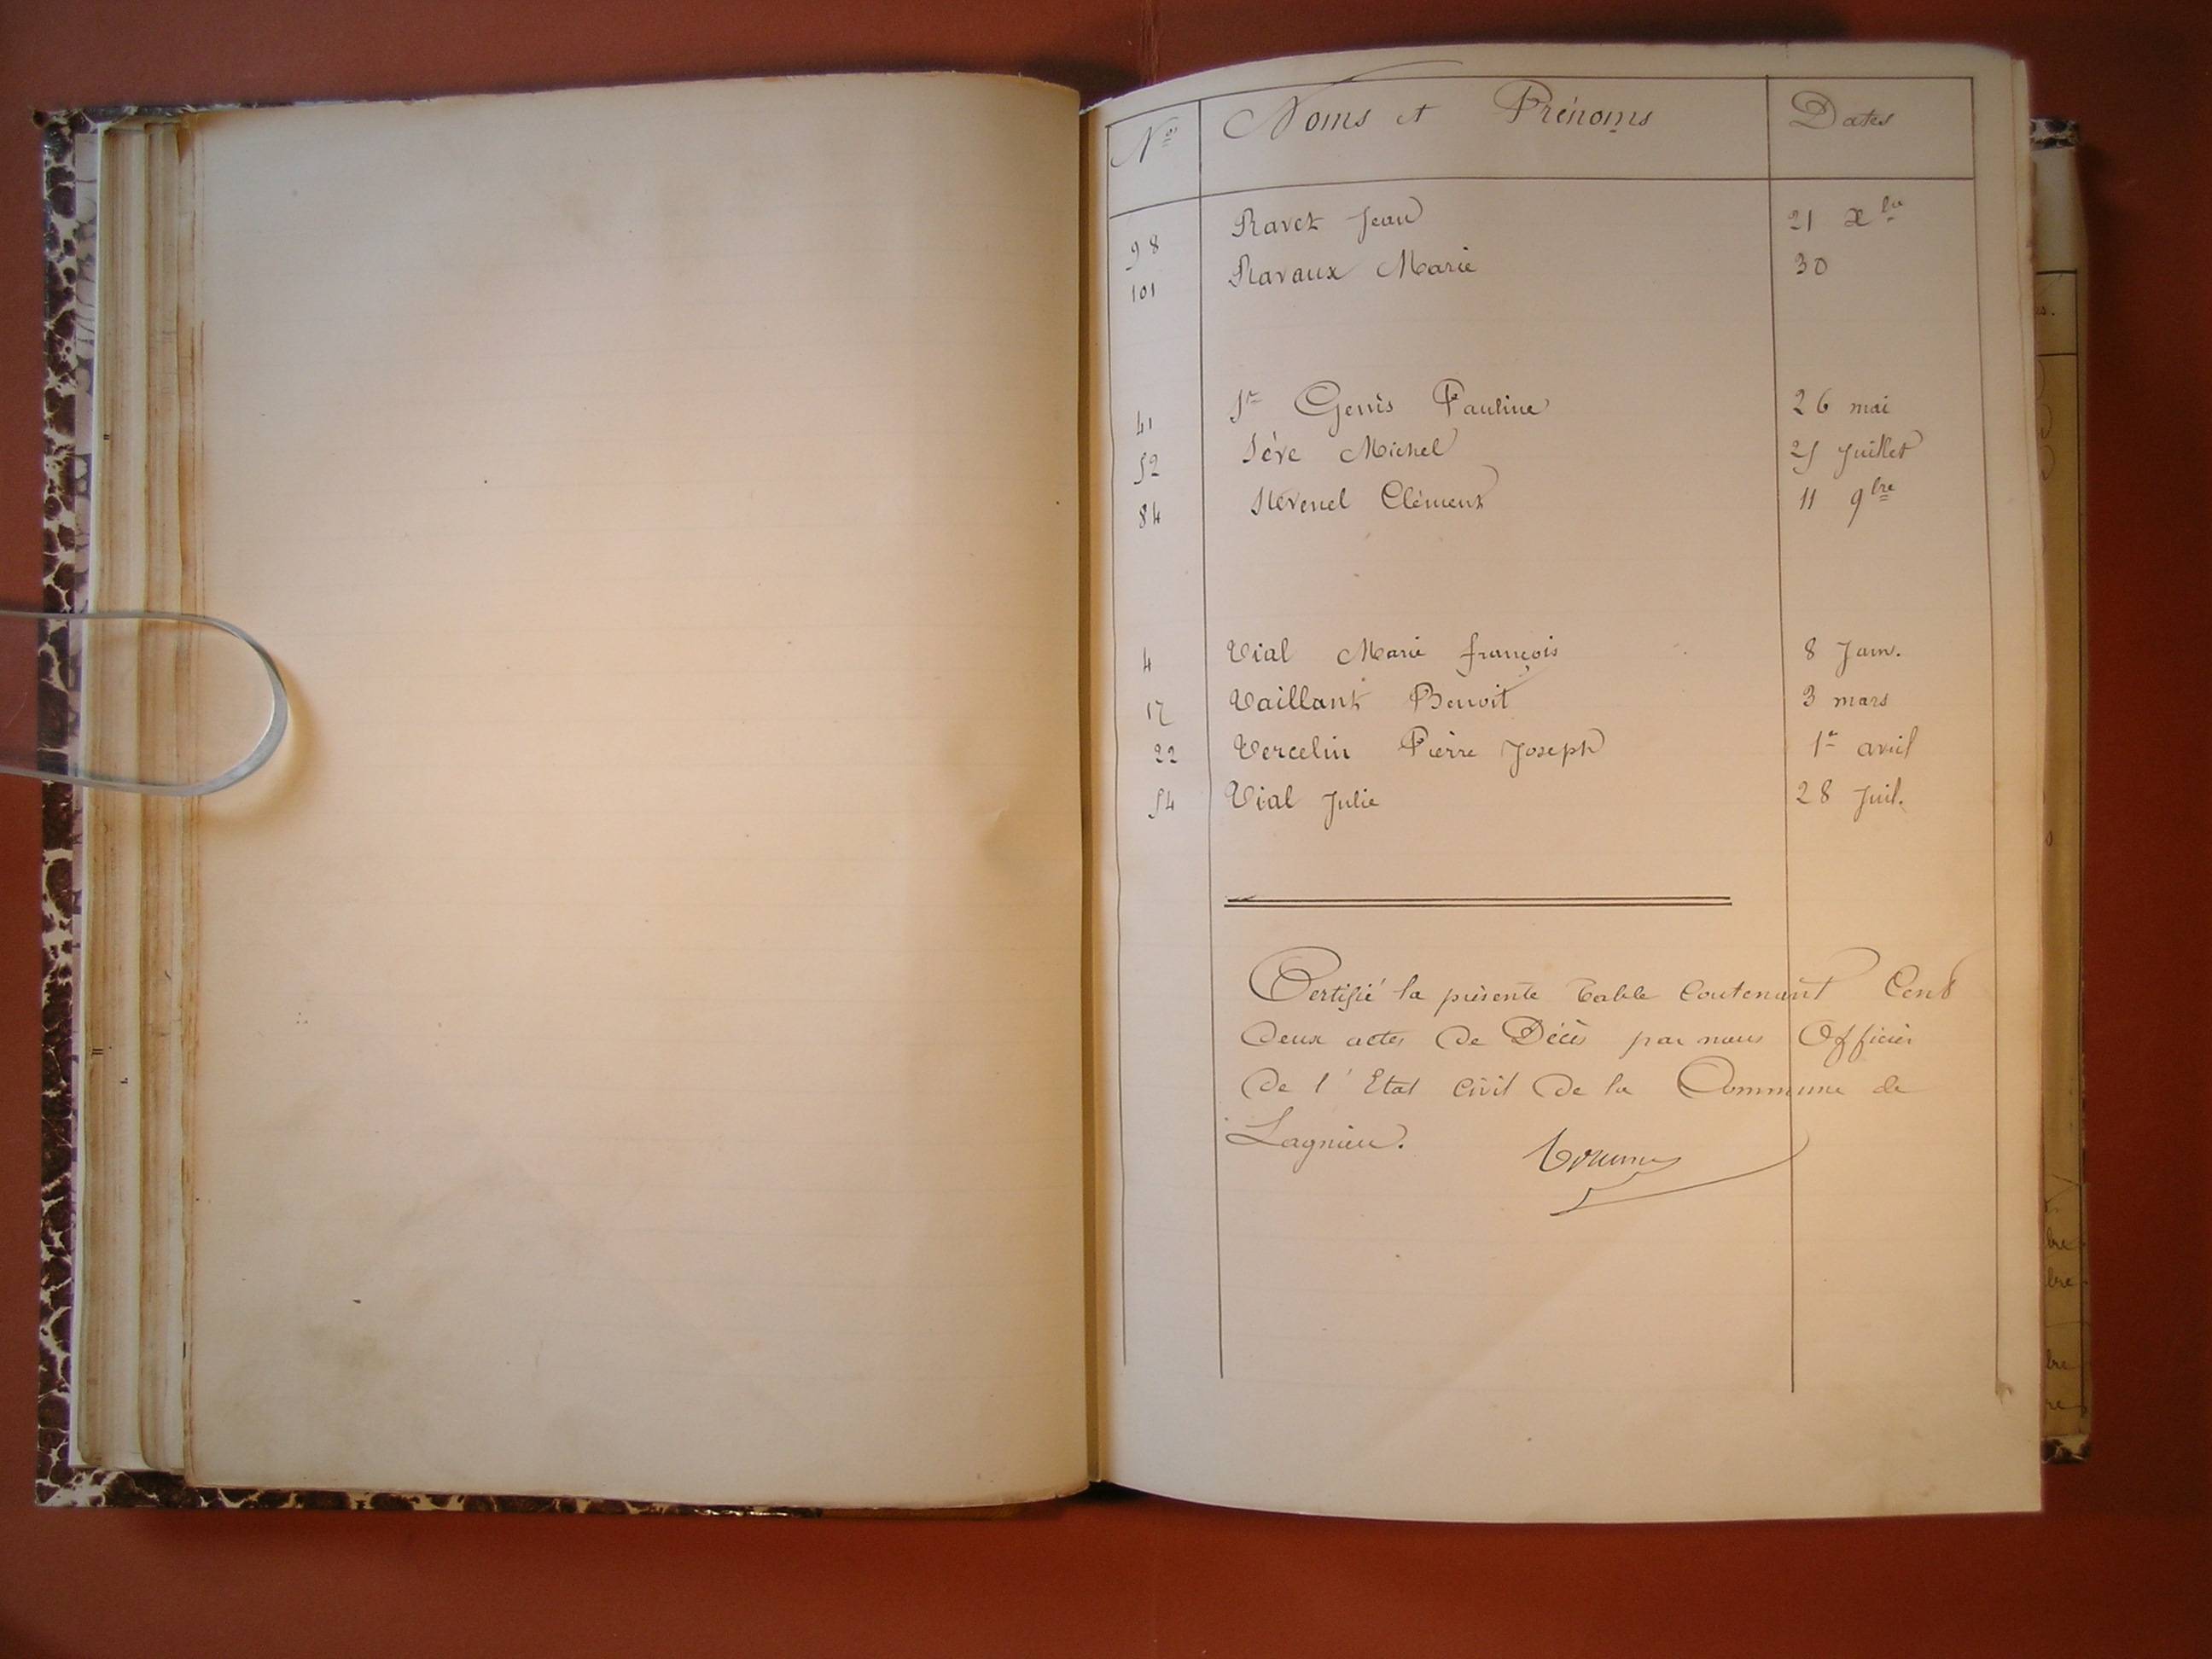 Nos Noms et Prénoms Dates
98 Ravet Jean 21 xbre
101 Ravaux Marie 30
41 St Genis Pauline 26 mai
52 Sève Michel 25 Juillet
84 Stévenel Clément 11 9bre
4 Vial Marie françois 8 Janv.
17 Vaillant Benoit 3 mars
22 Vercelin Pierre Joseph 1er avril
54 Vial Julie 28 Juil.
Certifié la présente table Contenant Cent
deux actes de Décès par nous Officier
de l'Etat Civil de la Commune de
Lagnieu.